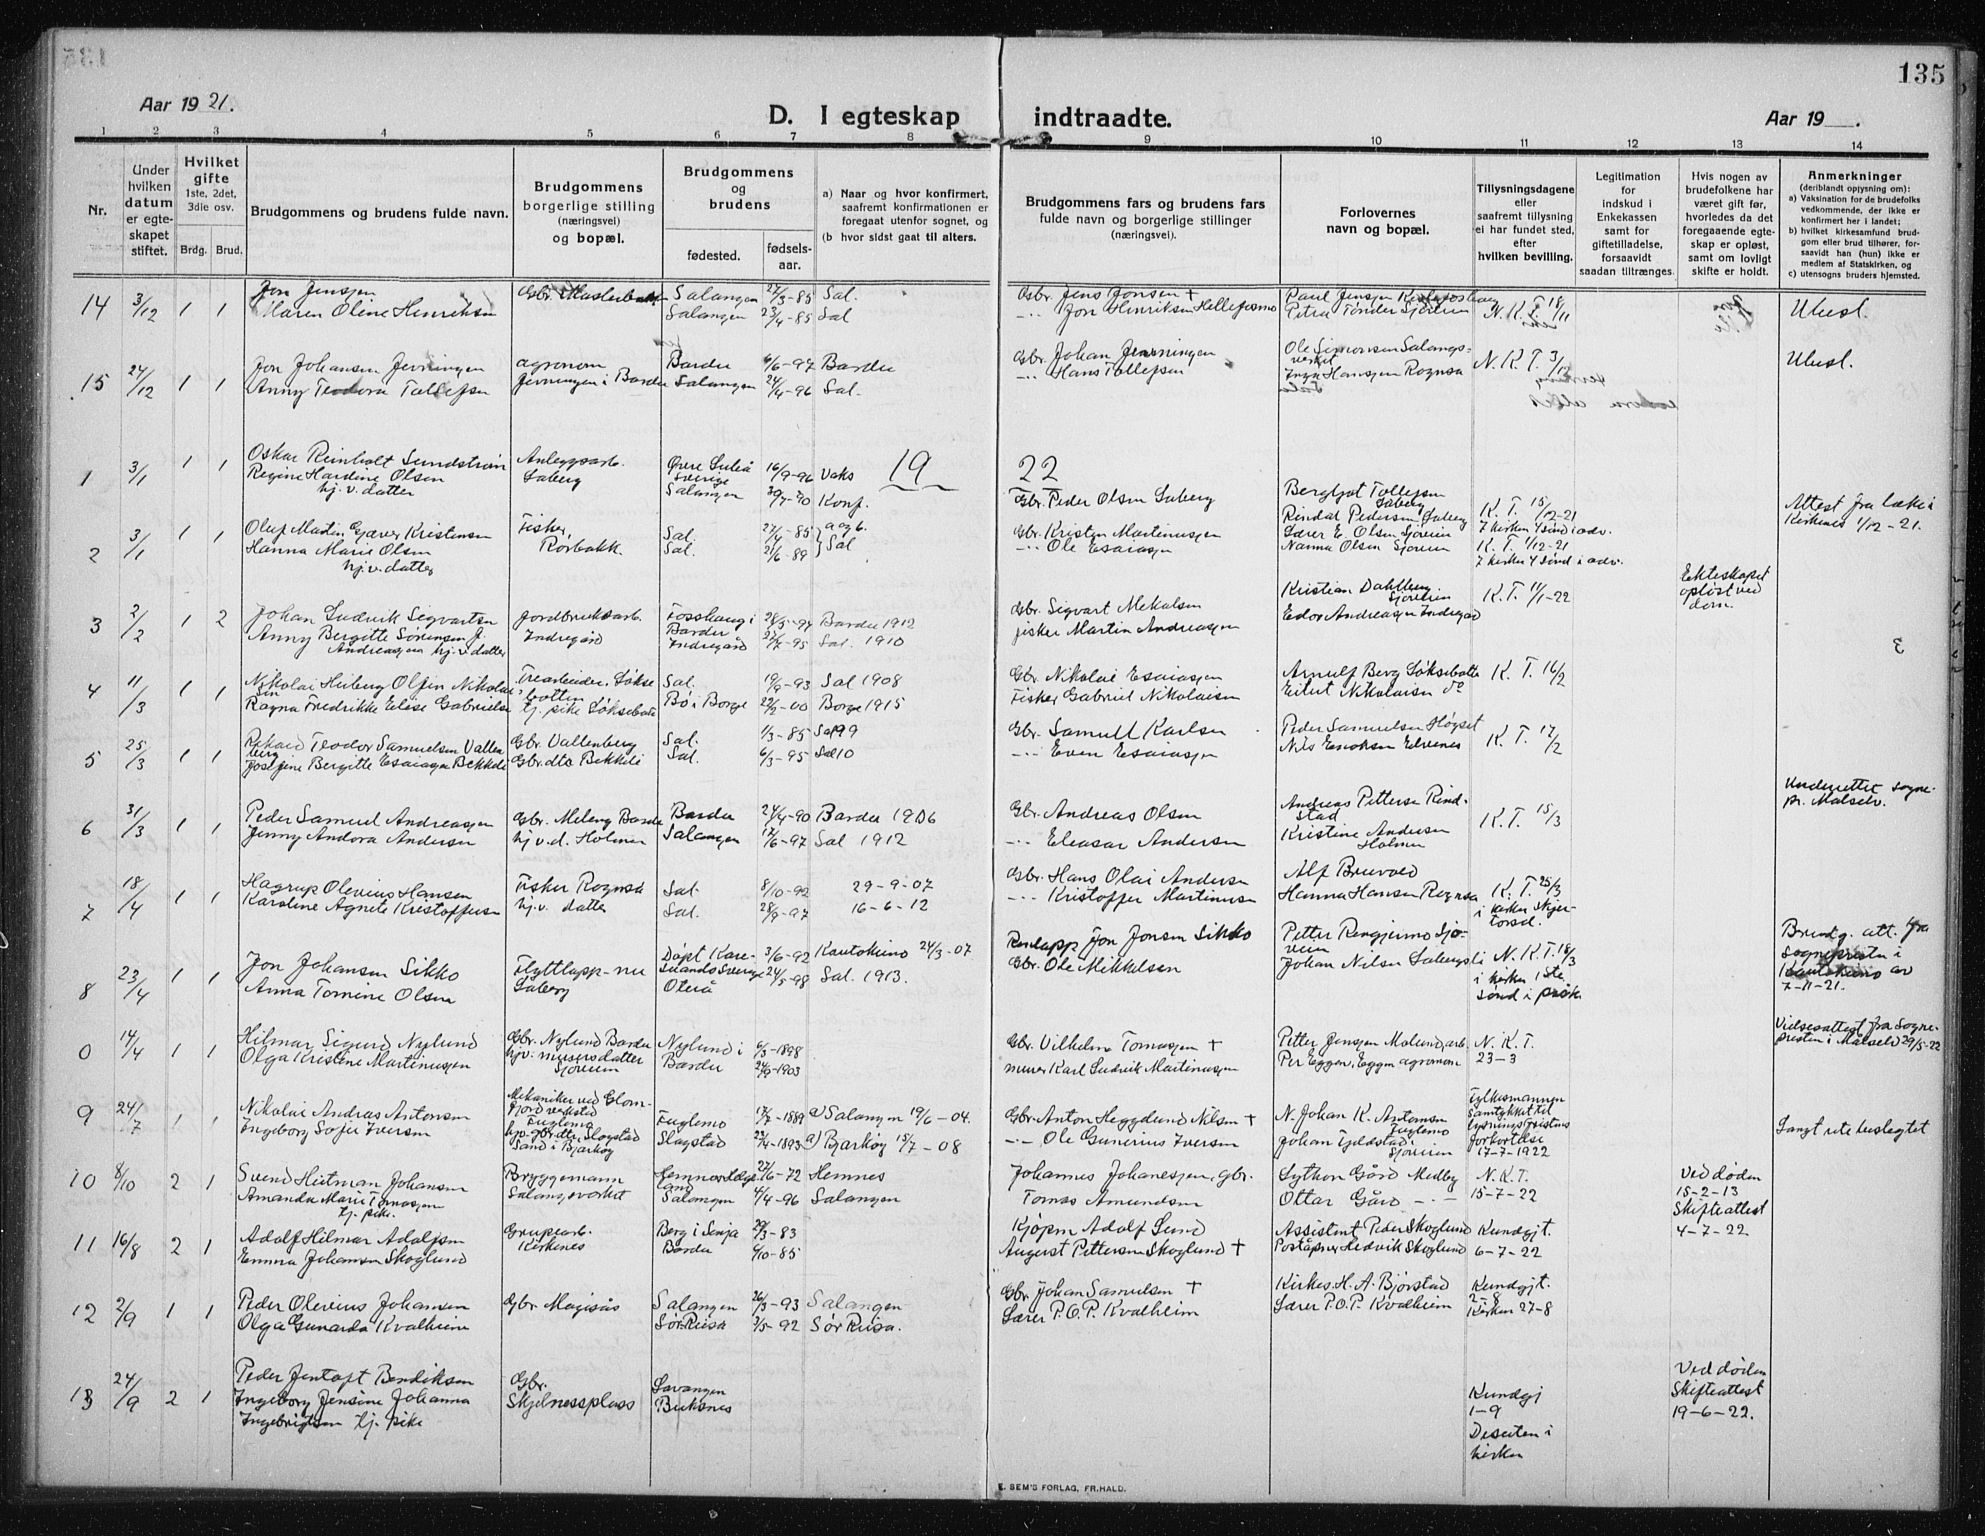 135
Aar 19 21.
D. I egteskap indtraadte.
Aar 19 .
1 2 3 4 5 6 7 8 9 10 11 12 13 14
Nr.
Under hvilken datum er egteskapet stiftet.
Hvilket gifte
1ste, 2det, 3die osv.
Brdg. Brud.
Brudgommens og brudens fulde navn.
Brudgommens borgerlige stilling (næringsvei) og bopæl.
Brudgommens og brudens
fødested.
fødsels-aar.
a) Naar og hvor konfirmert, saafremt konfirmationen er foregaat utenfor sognet, og
(b hvor sidst gaat til alters.
Brudgommens fars og brudens fars fulde navn og borgerlige stillinger (næringsvei).
Forlovernes navn og bopæl.
Tillysningsdagene eller saafremt tillysning ei har fundet sted, efter hvilken bevilling.
Legitimation for indskud i Enkekassen samt for giftetilladelse, forsaavidt saadan tiltrænges.
Hvis nogen av brudefolkene har været gift før, hvorledes da det foregaaende egteskap er opløst, samt om lovligt skifte er holdt.
Anmerkninger
(deriblandt opjysning om):
a) Vaksination for de brudefolks vedkommende, der ikke er konfirmert her i landet;
b) hvilket kirkesamfund brudgom eller brud tilhører, forsaavidt han (hun) ikke er medlem af Statskirken, og
c) utensogns bruders hjemsted.
14 3/12 1 1 Jon Jensen Salangen 27/3-85 Sal. Gbr. Jens Jonsen + Paul Jensen N. K. T. 18/11 Utusl.
Maren Oline Henriksen Salangen 23/4-85 Sal Jon Henriksen Petra Tønder Sjøveien
15 24/12 1 1 Jon Johansen Jevningen agronom Bardu 6/6-97 Bardu Gbr. Johan Jevningen Ole Simonsen Salangsverket N. K. T. 3/12 Utusl.
Anny Teodora Tollefsen Jevningen i Bardu Salangen 24/4-96 Sal. Hans Tollefsen Inga Hansen Rognsa
19 22
1 3/1 1 1 Oskar Reinholt Sundström Anleggsarb. Øvre Luleå Sverige 16/9-96 Vaks Bergljot Tollefsen Saberg K. T. 15/12-21 Attest fra
Regine Hardine Olsen hj.v.datter Saberg Salangen Konf. Gbr. Peder Olsen Saberg Rindal Pedersen Saberg 7 kirken 4 sønd i adv. Kirkenes 1/12-21.
2 3/1 Olup Martin Gjæver Kristensen Fisker, Sal. 27/4-85 a og b. Gbr. Kristen Martinussen Lærer E. Olsen Sjøveien K. T. 1/12-21
Hanna Marie Olsen hj.v.datter Rørbakk. Sal. 21/6-89 Sal Ole Esaiasen Nanna Olsen Sjøveien 7 kirken 4 sønd i adv.
3 2/2 1 2 Johan Ludvik Sigvartsen Jordbruksarb. Fosshaug i Bardu Bardu 1912 Gbr. Sigvart Mekalsen Kristian Dahlberg Sjøveien K. T. 11/1-22 Ekteskapet opløst ved dom.
Anny Bergitte Sørensen f. Andreassen hj.v.datter Indregård Indregård Sal. 1910 fisker Martin Andreassen Edor Andreassen Indregård
4 11/3 1 1 Nikolai Heiberg Olsen Nikolaisen Trearbeider, Løksebotten Sal. 19/9-93 Sal 1908 Gbr. Nikolai Esaiassen Arnulf Berg Løksebotte K. T. 16/2
Ragna Fredrikke Elise Gabrielsen tj. pike Løksebotn Bø i Borge 22/2-00 Borge 1915 Fisker Gabriel Nikolaisen Eilut Nikolaisen do
5 25/3 1 1 Rikard Teodor Samuelsen Vallenberg Gbr. Vallenberg Sal. 1/3-85 Sal 99 Gbr. Samuel Karlsen Peder Samuelsen Høgset K. T. 17/2
Josefine Bergitte Esaiassen Bekkeli Gbr. dtr. Bekkeli Sal. 6/3-95 Sal 10 Even Esaiassen Nils Enoksen Elvenes
6 31/3 1 1 Peder Samuel Andreassen Gbr. Meleng Bardu Bardu 24/4-90 Bardu 1906 Gbr. Andreas Olsen Andreas Petterse Rindstad K. T. 15/3 Underrettet sogne-pr. Målselv.
Jenny Andora Andersen hj v.d. Holmen Salangen 17/6-97 Sal 1912 Eleasar Andersen Kristine Andersen Holmen
7 18/4 1 1 Hagrup Olevius Hansen Fisker Rognsa Sal. 8/10-92 29-9-07 Gbr. Hans Olai Andersen Alf Bruvold K. T. 25/3
Karoline Agnete Kristoffersen hj.v. datter Sal. 28/9-97 16-6-12 Kristoffer Martinusen Hanna Hansen Rognsa i kirken skjærtorsd.
8 23/4 1 1 Jon Johansen Sikko Flyttlapp-nu Døpt Karesuando Sverige 3/6-92 Kautokeino 24/3-07 Reinlapp Jon Jonsen Sikko Petter Rengjermo Sjøveien N. K. T. 18/3 Brudg. att. fra Sognepresten i Kautokeino av 7-11-21.
Anna Tomine Olsen Saberg Oterå 24/5-98 Sal. 1913. Gbr. Ole Mikkelsen Johan Nilsen Sabergsli i kirken 1ste sønd i påsk.
0 14/4 1 1 Hilmar Sigurd Nylund Gbr. Nylund Bardu Nylund i 6/3-1898 Gbr. Vilhelm Tomassen + Petter Jenssen Molund, arb. N. K. T. Vielsesattest fra Sogne-presten i Målselv 29/5-22
Olga Kristine Martinussen hjv. murersdatter Sjøveien Bardu 24/9-1903 murer Karl Ludvik Martinussen Per Eggen, Eggen agronom 23-3
9 24/7 1 1 Nikolai Andras Antonsen Mekaniker ved Glomfjord verksted Fuglemo Fuglemo 17/7-1889 a) Salangen 19/6-04. Gbr. Anton Heggelund Nilsen + N. Johan K. Antonsen Fuglemo Fylkesmannen samtykket til lysningsfristens forkortelse 17-7-1922 Langt ute beslegtet
Ingeborg Sofie Iversen hjv. gbrdtr. Slagstad Sand i Bjarkøy Slagstad 22/4-1893 a) Bjarkøy 15/7-08 Ole Gunerius Iversen Johan Fjeldstad, Sjøveien
10 8/10 2 1 Svend Heitman Johansen Bryggemann 27/6-72 Hemnes Johannes Johanessen, gbr. Lython Gård Medby N. K. T. Ved døden 15-2-13
Amanda Marie Tomassen tj. pike. Salangsverket Salangen 4/4-96 Salangen Tomas Amundsen Ottar Gård 15-7-22 Skifteattest 4-7-22
11 16/8 2 1 Adolf Hilmar Adolfsen Grubearb. Berg i Senja 29/3-83 Kjøpm Adolf Lund Assistent Peder Skoglund Kundgjt.
Emma Johansen Skoglund Kirkenes Bardu 6/10-85 August Pettersen Skoglund + Poståpner Hedvik Skoglund 6-7-22
12 2/9 1 1 Peder Olevius Johansen Gbr. Magisås Salangen 26/3-93 Salangen Gbr. Johan Samuelsen + Kirkes. H. A. Bjørstad Kundgjt. 2-8
Olga Gunarda Kvalheim Sør Reisa 3/5-92 Sør Reisa. Lærer P.O.P. Kvalheim Lærer P.O.P. Kvalheim Kirken 27-8
13 24/9 2 1 Peder Jentoft Bendiksen Gbr. Lavangen Kundgj 1-9 Ved døden
Ingeborg Jensine Johanna Skjelnessplass Buksnes Dessuten i kirken Skifteattest
Ingebrigtsen tj. pike 19-6-22.
E. SEM'S FORLAG, FR.HALD.